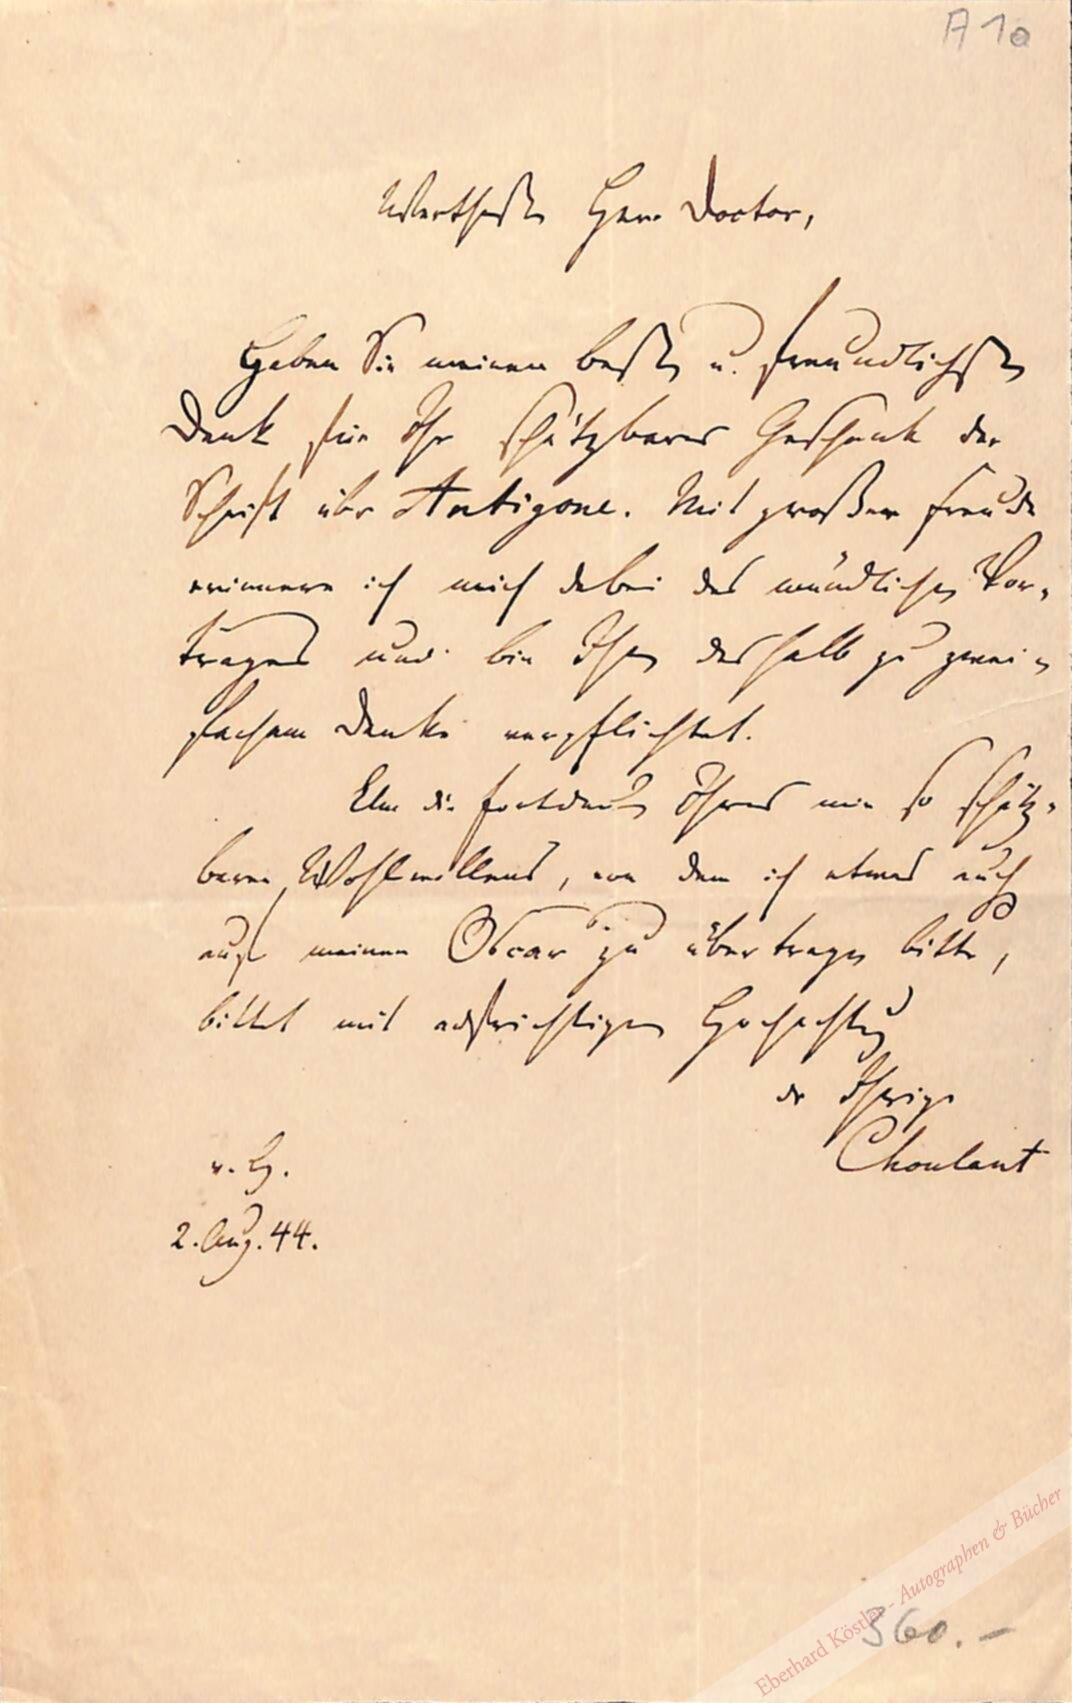 A 10
Werthester Herr Doctor,
Haben Sie meinen besten u. freundlichsten
Dank für Ihr schätzbares Geschenk der
Schrift über Antigone. Mit großer Freude
erinnere ich mich dabei des mündlichen Vor-
trages und bin Ihnen deshalb zu zwei-
fachem Danke verpflichtet.
Um die Fortdauer Ihres mir so schätz-
baren Wohlwollens, von dem ich etwas auch
auf meinen Oscar zu übertragen bitte,
bittet mit aufrichtiger Hochachtung
der Ihrige
Choulant
v. H.
2. Aug. 44.
Eberhard Köstler - Autographen & Bücher
360.-